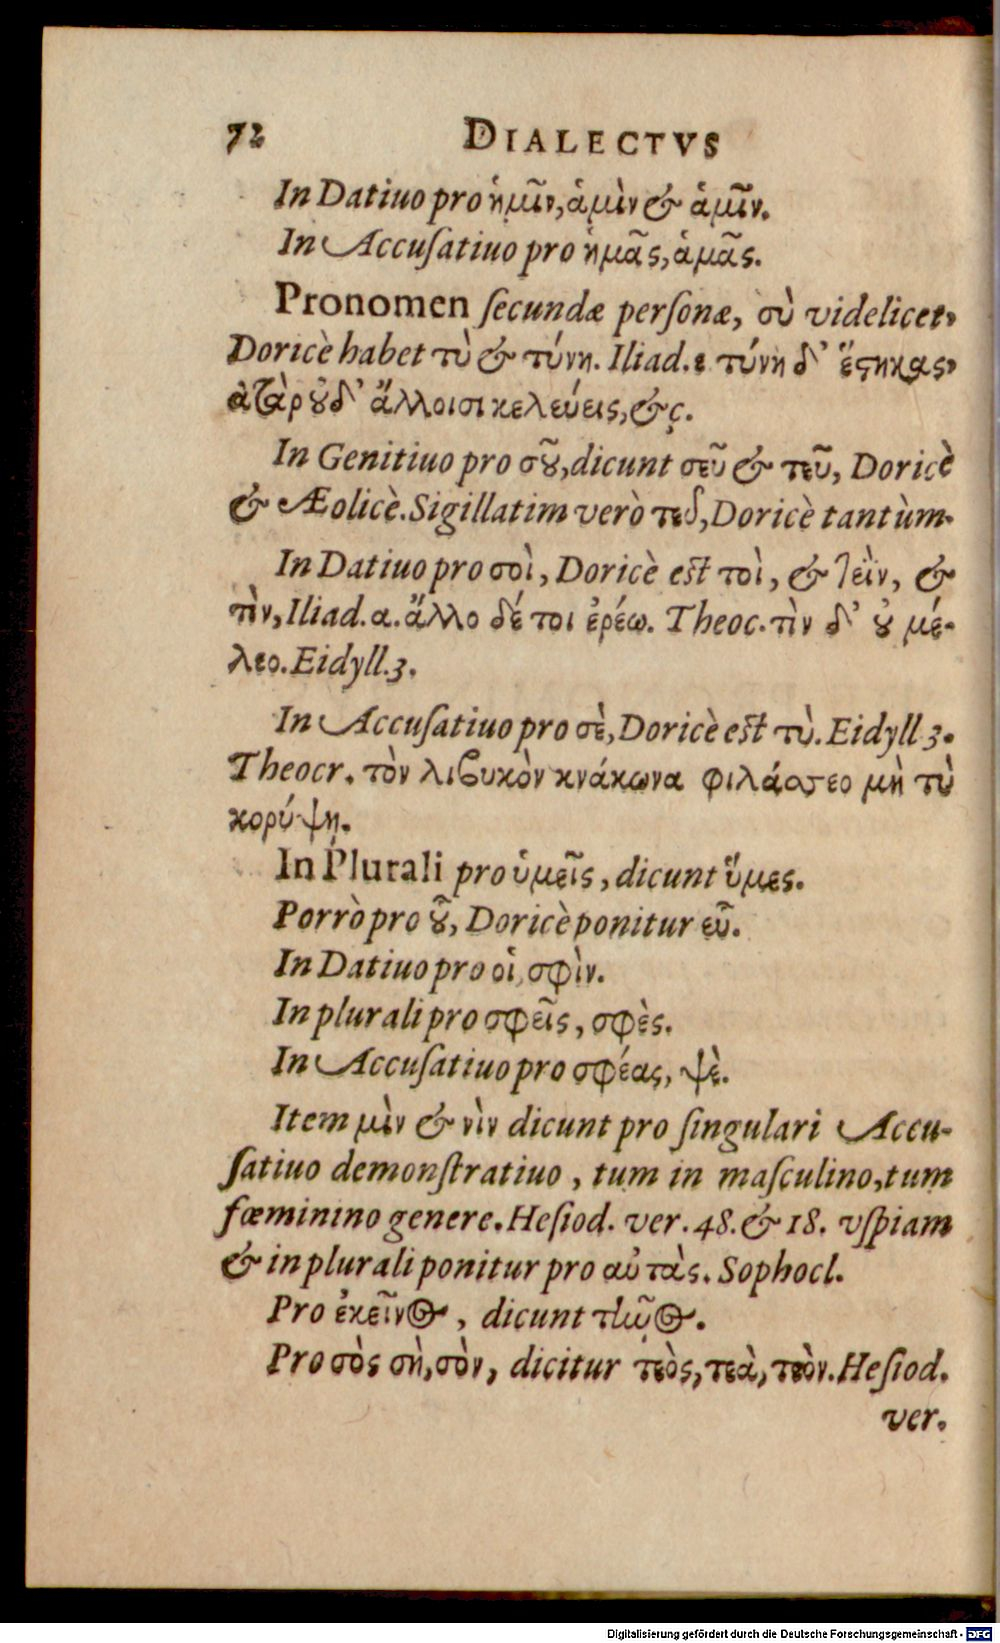 72 DIALECTVS
In Datiuo pro ἡμῖν, ἁμὶν & ἁμῖν.
In Accuſatiuo pro ἡμᾶς, ἁμᾶς.
Pronomen ſecundæ perſonæ, σὺ videlicet,
Doricè habet τὺ & τύνη. Iliad. ε τύνη δ' ἕστηκας,
ἀτὰρ οὐδ' ἄλλοισι κελεύεις, &ς.
In Genitiuo pro σοῦ, dicunt σεῦ & τεῦ, Doricè
& Æolicè. Sigillatim verò τεοῦ, Doricè tantùm.
In Datiuo pro σοὶ, Doricè eſt τοὶ, & τεῒν, &
τὶν, Iliad. α. ἄλλο δέ τοι ἐρέω. Theoc. τὶν δ' οὐ μέ-
λεο. Eidyll. 3.
In Accuſatiuo pro σὲ, Doricè eſt τὺ. Eidyll 3.
Theocr. τὸν λιβυκὸν κνάκωνα φιλάσσεο μὴ τὺ
κορύψῃ.
In Plurali pro ὑμεῖς, dicunt ὕμες.
Porrò pro οὗ, Doricè ponitur εὗ.
In Datiuo pro οἱ, σφὶν.
In plurali pro σφεῖς, σφὲς.
In Accuſatiuo pro σφέας, ψὲ.
Item μὶν & νὶν dicunt pro ſingulari Accu-
ſatiuo demonſtratiuo, tum in maſculino, tum
fœminino genere. Heſiod. ver. 48. & 18. vſpiam
& in plurali ponitur pro αὐτὰς. Sophocl.
Pro ἐκεῖνος, dicunt τῆνος.
Pro σὸς σὴ, σὸν, dicitur τεὸς, τεὰ, τεὸν. Heſiod.
ver.
Digitalisierung gefördert durch die Deutsche Forschungsgemeinschaft - DFG